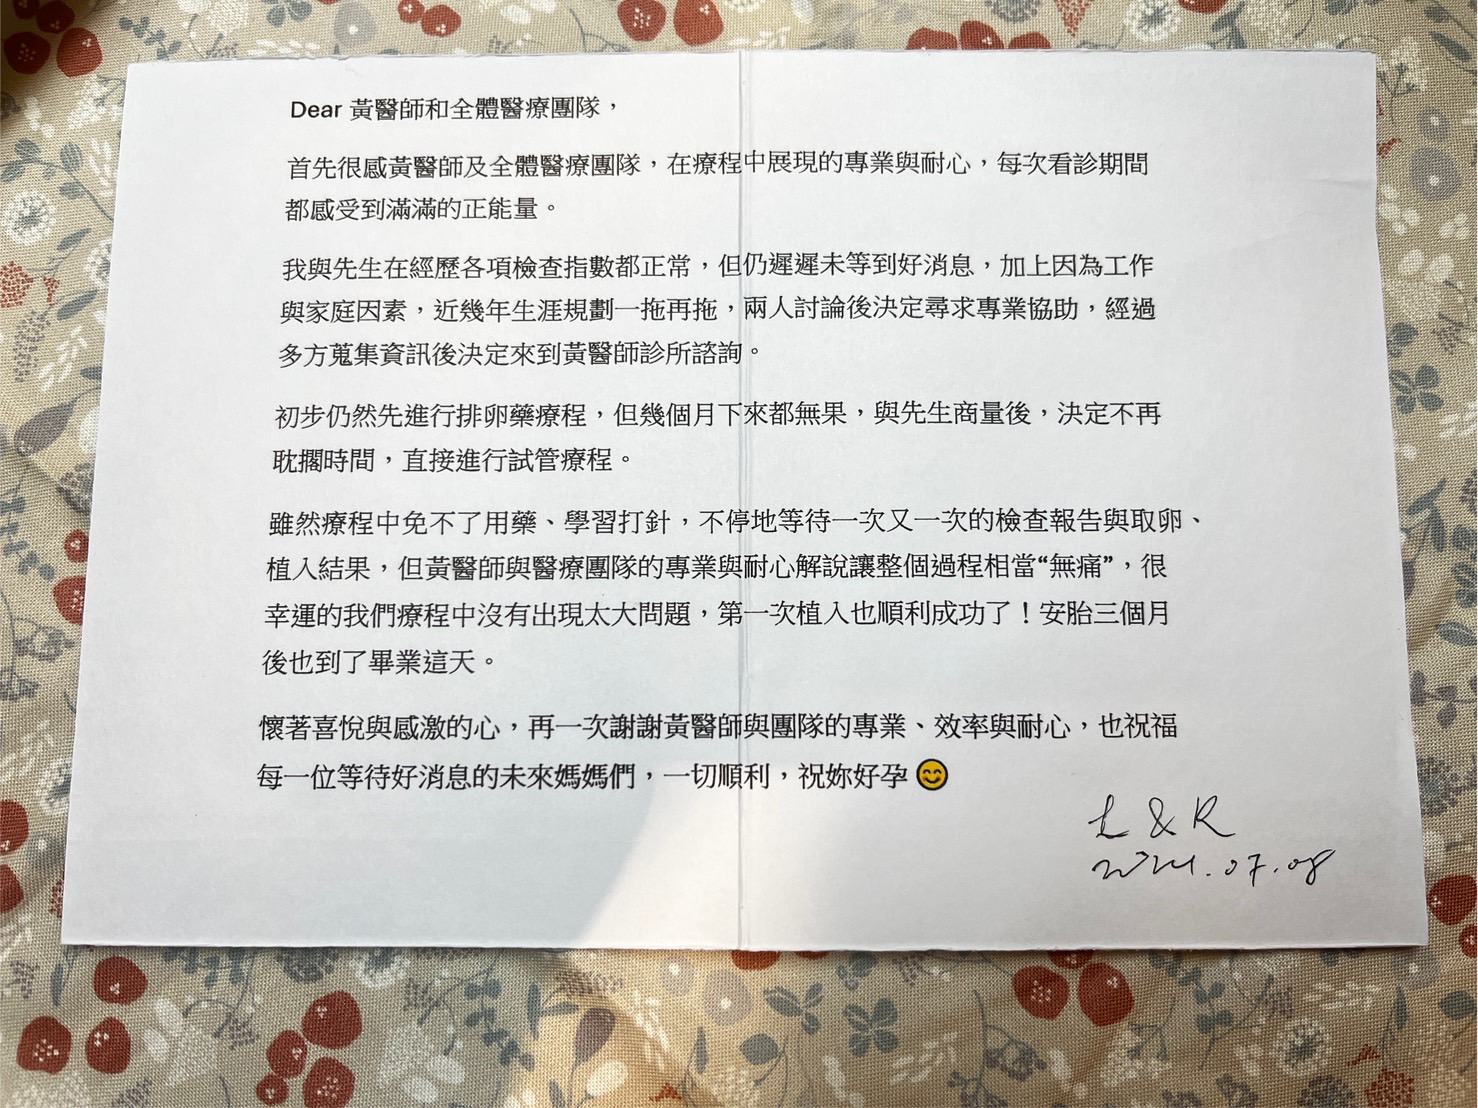 Dear 黃醫師和全體醫療團隊，
首先很感黃醫師及全體醫療團隊，在療程中展現的專業與耐心，每次看診期間
都感受到滿滿的正能量。
我與先生在經歷各項檢查指數都正常，但仍遲遲未等到好消息，加上因為工作
與家庭因素，近幾年生涯規劃一拖再拖，兩人討論後決定尋求專業協助，經過
多方蒐集資訊後決定來到黃醫師診所諮詢。
初步仍然先進行排卵藥療程，但幾個月下來都無果，與先生商量後，決定不再
耽擱時間，直接進行試管療程。
雖然療程中免不了用藥、學習打針，不停地等待一次又一次的檢查報告與取卵、
植入結果，但黃醫師與醫療團隊的專業與耐心解說讓整個過程相當“無痛”，很
幸運的我們療程中沒有出現太大問題，第一次植入也順利成功了！安胎三個月
後也到了畢業這天。
懷著喜悅與感激的心，再一次謝謝黃醫師與團隊的專業、效率與耐心，也祝福
每一位等待好消息的未來媽媽們，一切順利，祝妳好孕😊
L & R
2024.07.08